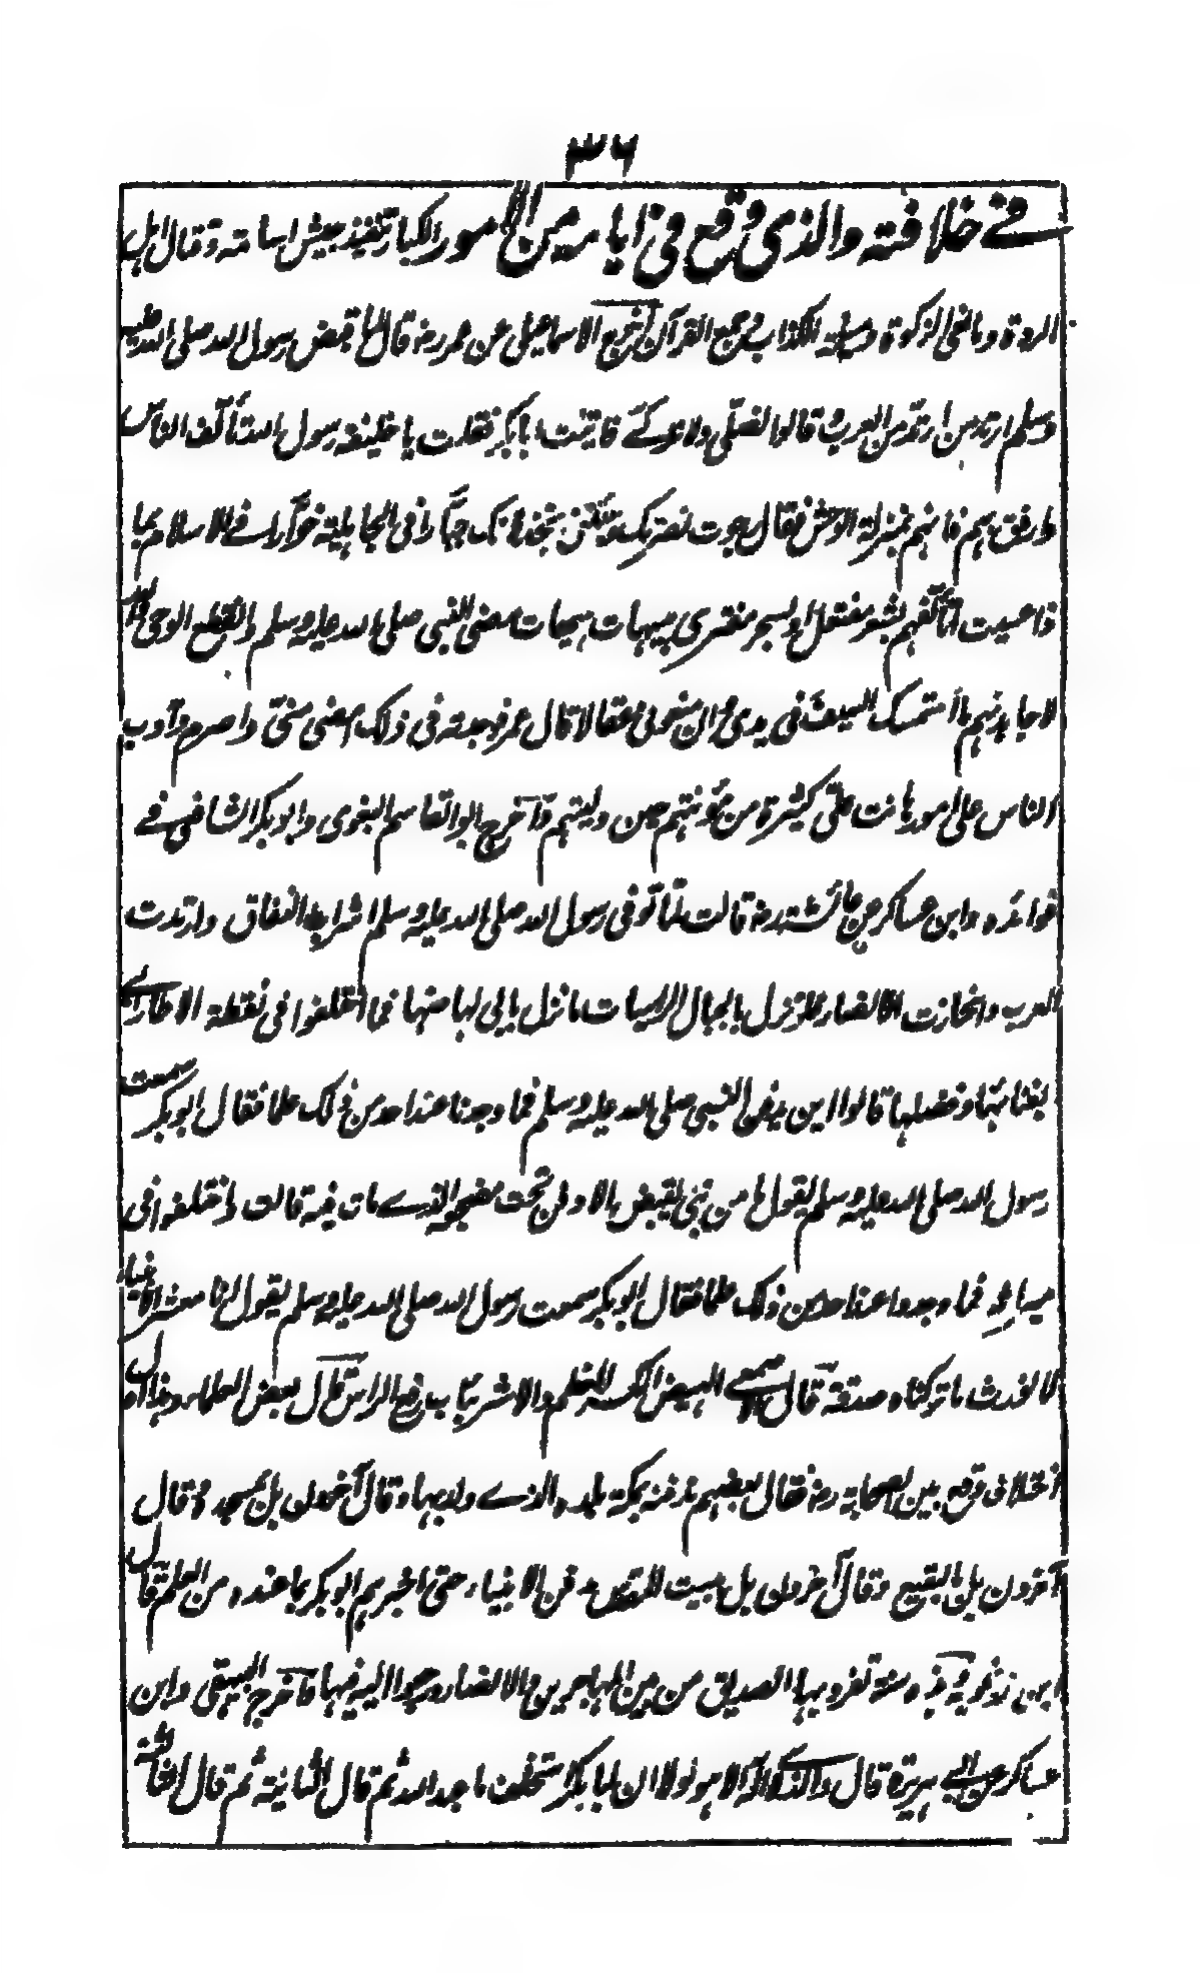 ٣٦
في خلافته والذي وقع في ايامه من الامور الكبار تنفيذ جيش اسامة وقتال اهل
الردة ومانعى الزكوة ومسيلمة الكذاب وجمع القرآن اخرج الاسماعيلي عن عمر رضـ قال لما قبض رسول الله صلى الله عليه
وسلم ارتد من ارتد من العرب وقالوا نصلى ولا نزكے فاتيت ابا بكر فقلت يا خليفة رسول الله تألف الناس
وارفق بهم فانهم بمنزلة الوحش فقال رجوت نصرتك وجئتنى بخذلانك جبّارا فى الجاهلية خوّارا فے الاسلام بما
ذا عسيت اتألفهم بشعر مفتعل او بسحر مفترى هيهات هيهات مضى النبى صلى الله عليه وسلم وانقطع الوحى والله
لاجاهدنهم ما استمسك السيف فى يدى وان منعونى عقالا قال عمر فوجدته فى ذلك امضى منى واصرم وآدب
الناس على امور هانت علىّ كثيرة من مؤنتهم حين وليتهم وآخرج ابوالقاسم البغوى وابوبكر الشافعى فے
فوائده وابن عساكر عن عائشة رضـ قالت لمّا توفى رسول الله صلى الله عليه وسلم اشرأب النفاق وارتدت
العرب وانحازت الانصار فلو نزل بالجبال الراسيات ما نزل بابى لهاضها فما اختلفوا فى نقطة الا طار ابى
بغنائها وفضلها قالوا اين يدفن النبى صلى الله عليه وسلم فما وجدنا عند احد من ذلك علما فقال ابوبكر سمعت
رسول الله صلى الله عليه وسلم يقول ما من نبى يقبض الا دفن تحت مضجعه الذے مات فيه قالت واختلفوا فى
ميراثه فما وجدوا عند احد من ذلك علما فقال ابوبكر سمعت رسول الله صلى الله عليه وسلم يقول انا معشر الانبياء
لا نورث ما تركناه صدقة قال الاصمعے الهيض الكسر للعظم والاشرئباب رفع الراس قال بعض العلماء وهذا اول
اختلاف وقع بين الصحابة رضـ فقال بعضهم ندفنه بمكة بلده الذے ولد بها وقال آخرون بل بمسجده وقال
آخرون بل بالبقيع وقال آخرون بل ببيت المقدس مدفن الانبياء حتى اخبرهم ابوبكر بما عنده من العلم قال
ابن زنجويه وهذه سنة تفرد بها الصديق من بين المهاجرين والانصار ورجعوا اليه فيها واخرج البيهقى وابن
عساكر عن ابى هريرة قال والذے لا اله الا هو لولا ان ابا بكر استخلف ما عبد الله ثم قال الثانية ثم قال الثالثة